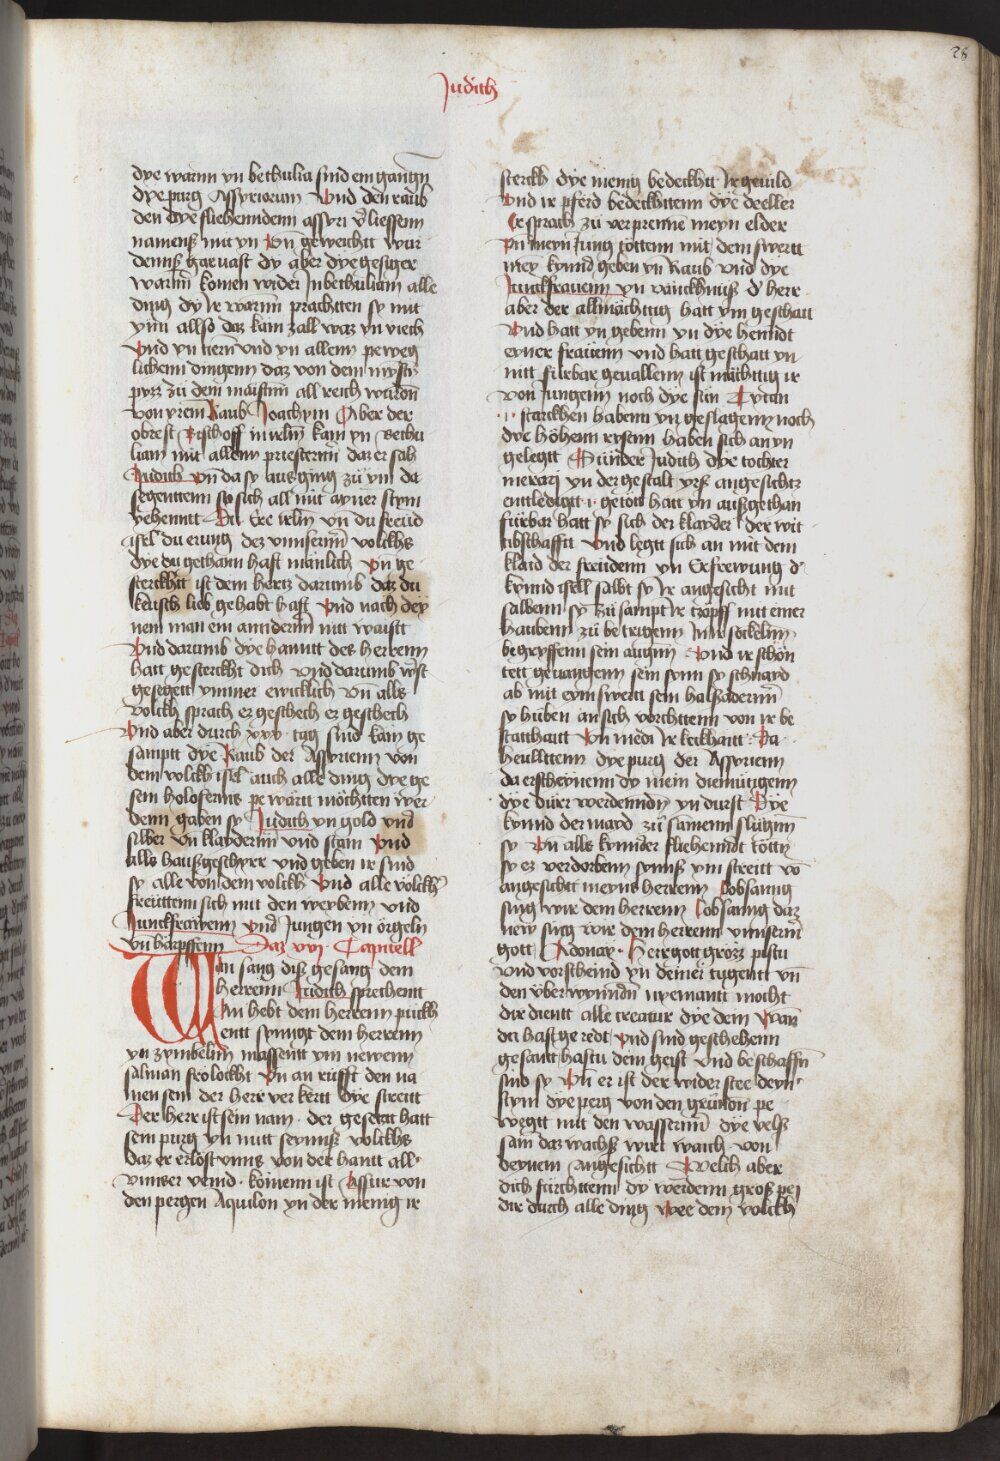 28
Judith
dye warnn yn bethulia sind ein gangn
dye purg Assyriorum Vnd den raub
den dye fliehenndenn assyri v̉liessenn
namenß mit yn Vn̄ geweichtt wur
dennß gar uast dy aber dye gesiger
warnn komen wider In bethuliam alle
ding dy Ir warnn prachtten sy mit
ynn allso daz kain zall waz yn viech
Vnd yn tiern̄ vnd yn allenn peweg
lichenn dingenn daz von dem
zu dem maistnn all reich wardn̄
von yrem Raub Joachym Aber der
obrest Bischoff in irl̄m kam yn Bethu
liam mit allenn priesternn daz er sah
Judith Vn̄ da sy aus ging zu ym da
segenttenn sy sich all mit ayner stym
yehenntt Du Ere irl̄m vn̄ du freud
isl̄ du erung dez vnnsernn volckhs
dye du gethann hast manlich Vn̄ ge
sterckhtt ist dein hertz darumb daz du
keusch lieb gehabt hast Vnd nach dey
nem man ein anndernn nitt waistt
Vnd darumb dye hanntt des herrenn
hatt gesterckht dich vnd darumb wirst
gesegett ymmer ewicklich Vn̄ alls
volckh sprach ez geschech ez geschech
Vnd aber durch xxx tag sind kam ge
samptt dye Raub der Assyrienn von
dem volckh isl̄ auch alle ding dye ge
sein holofernns pewartt mochtten wer
denn gaben sy Judith yn gold vnd
silber vn̄ klaydernn vnd stain Vnd
alls haußgeschyrr vnd geben ir sind
sy alle von dem volckh Vnd alle volckh
freuttenn sich mit den weybenn vnd
Junckfrawenn vnd Jungen yn orgeln
vn̄ harpffenn Daz xvj Capittell
Wan sang diß gesang dem
herrenn Judith sprechentt
An hebt dem herrenn puckh
entt synngt dem herrenn
yn zymbelnn massentt ym newenn
salman frolockht Vn̄ an rufft den na
men sein der herr ver kertt dye streitt
Der herr ist sein nam der gesetzt hatt
sein purg yn mitt seynnß volckhs
daz er erlost vnns von der hantt all
vnnser veind komenn ist Assur von
den pergen Aquilon yn der menig ir
sterckh dye menig bedeckhtt Ir gewild
Vnd ir pferd bedeckhttenn dye deeller
Er sprach zu verprenne meyn elder
Vn̄ meyn Jung tottenn mit dem swertt
mey kynnd geben yn Raub vnd dye
Junckfrauenn yn vanckhnuß d' herr
aber der allmachttig hatt ym geschatt
Vnd hatt yn gebenn yn dye henndt
eyner frauenn vnd hatt geschatt yn
nitt furbar geuallenn ist machttig ir
von Jungenn noch dye sun Tytan
starckhen habenn yn geslagenn noch
dye hohenn rysenn haben sich an yn
gelegtt Sunder Judith dye tochter
merari yn der gestalt yrß angesichtz
enttledigtt getott hatt yn außgethan
furbar hatt sy sich der klayder der wit
tibschafft Vnd legtt sich an mit dem
klaid der freudenn yn Erfrewung d'
kynnd isl̄l salbt sy Ir angesicht mit
salbenn sy zu sampt Ir tzopff mit einer
haubenn zu betrigenn Im ir sockelnn
begryffenn sein augnn Vnd ir schon
tett geuangenn sein synn sy schnayd
ab mit eym swertt sein halßadernn
sy huben an sich vorchttenn von ir be
statthautt Vn̄ medi Ir keckhautt Da
heullttenn dye purg der Assyrienn
da erscheynenn dy mein diemutigenn
dye durr werdenndn yn durst Dye
kynnd der mayd zu samenn slugnn
sy Vn̄ alls kynnder fliehenndt totty
sy ez verdorbenn synnß ym streitt vo
angesichtt meyns herrenn Lobsanng
sing wir dem herrenn Lobsanng daz
new sing wir dem herrenn vnnsernn
gott Adonay Herr gott grozz pistu
vnd vorscheind yn deiner tugentt vn̄
den vberwynndn̄ nyemantt mocht
dir dientt alle creatur dye dein Wan
du hast geredt Vnd sind geschehenn
gesantt hastu dein geist Vnd beschaffn
sind sy Vn̄ er ist der widerstee deyn
stym dye perg von den grunndn̄ pe
wegtt mit den wassernn dye velß
sam daz wachß wirt waich von
deynem angesichtt Welch aber
dich furchttenn dy werdenn groß pey
dir durch alle ding Wee dem volckh